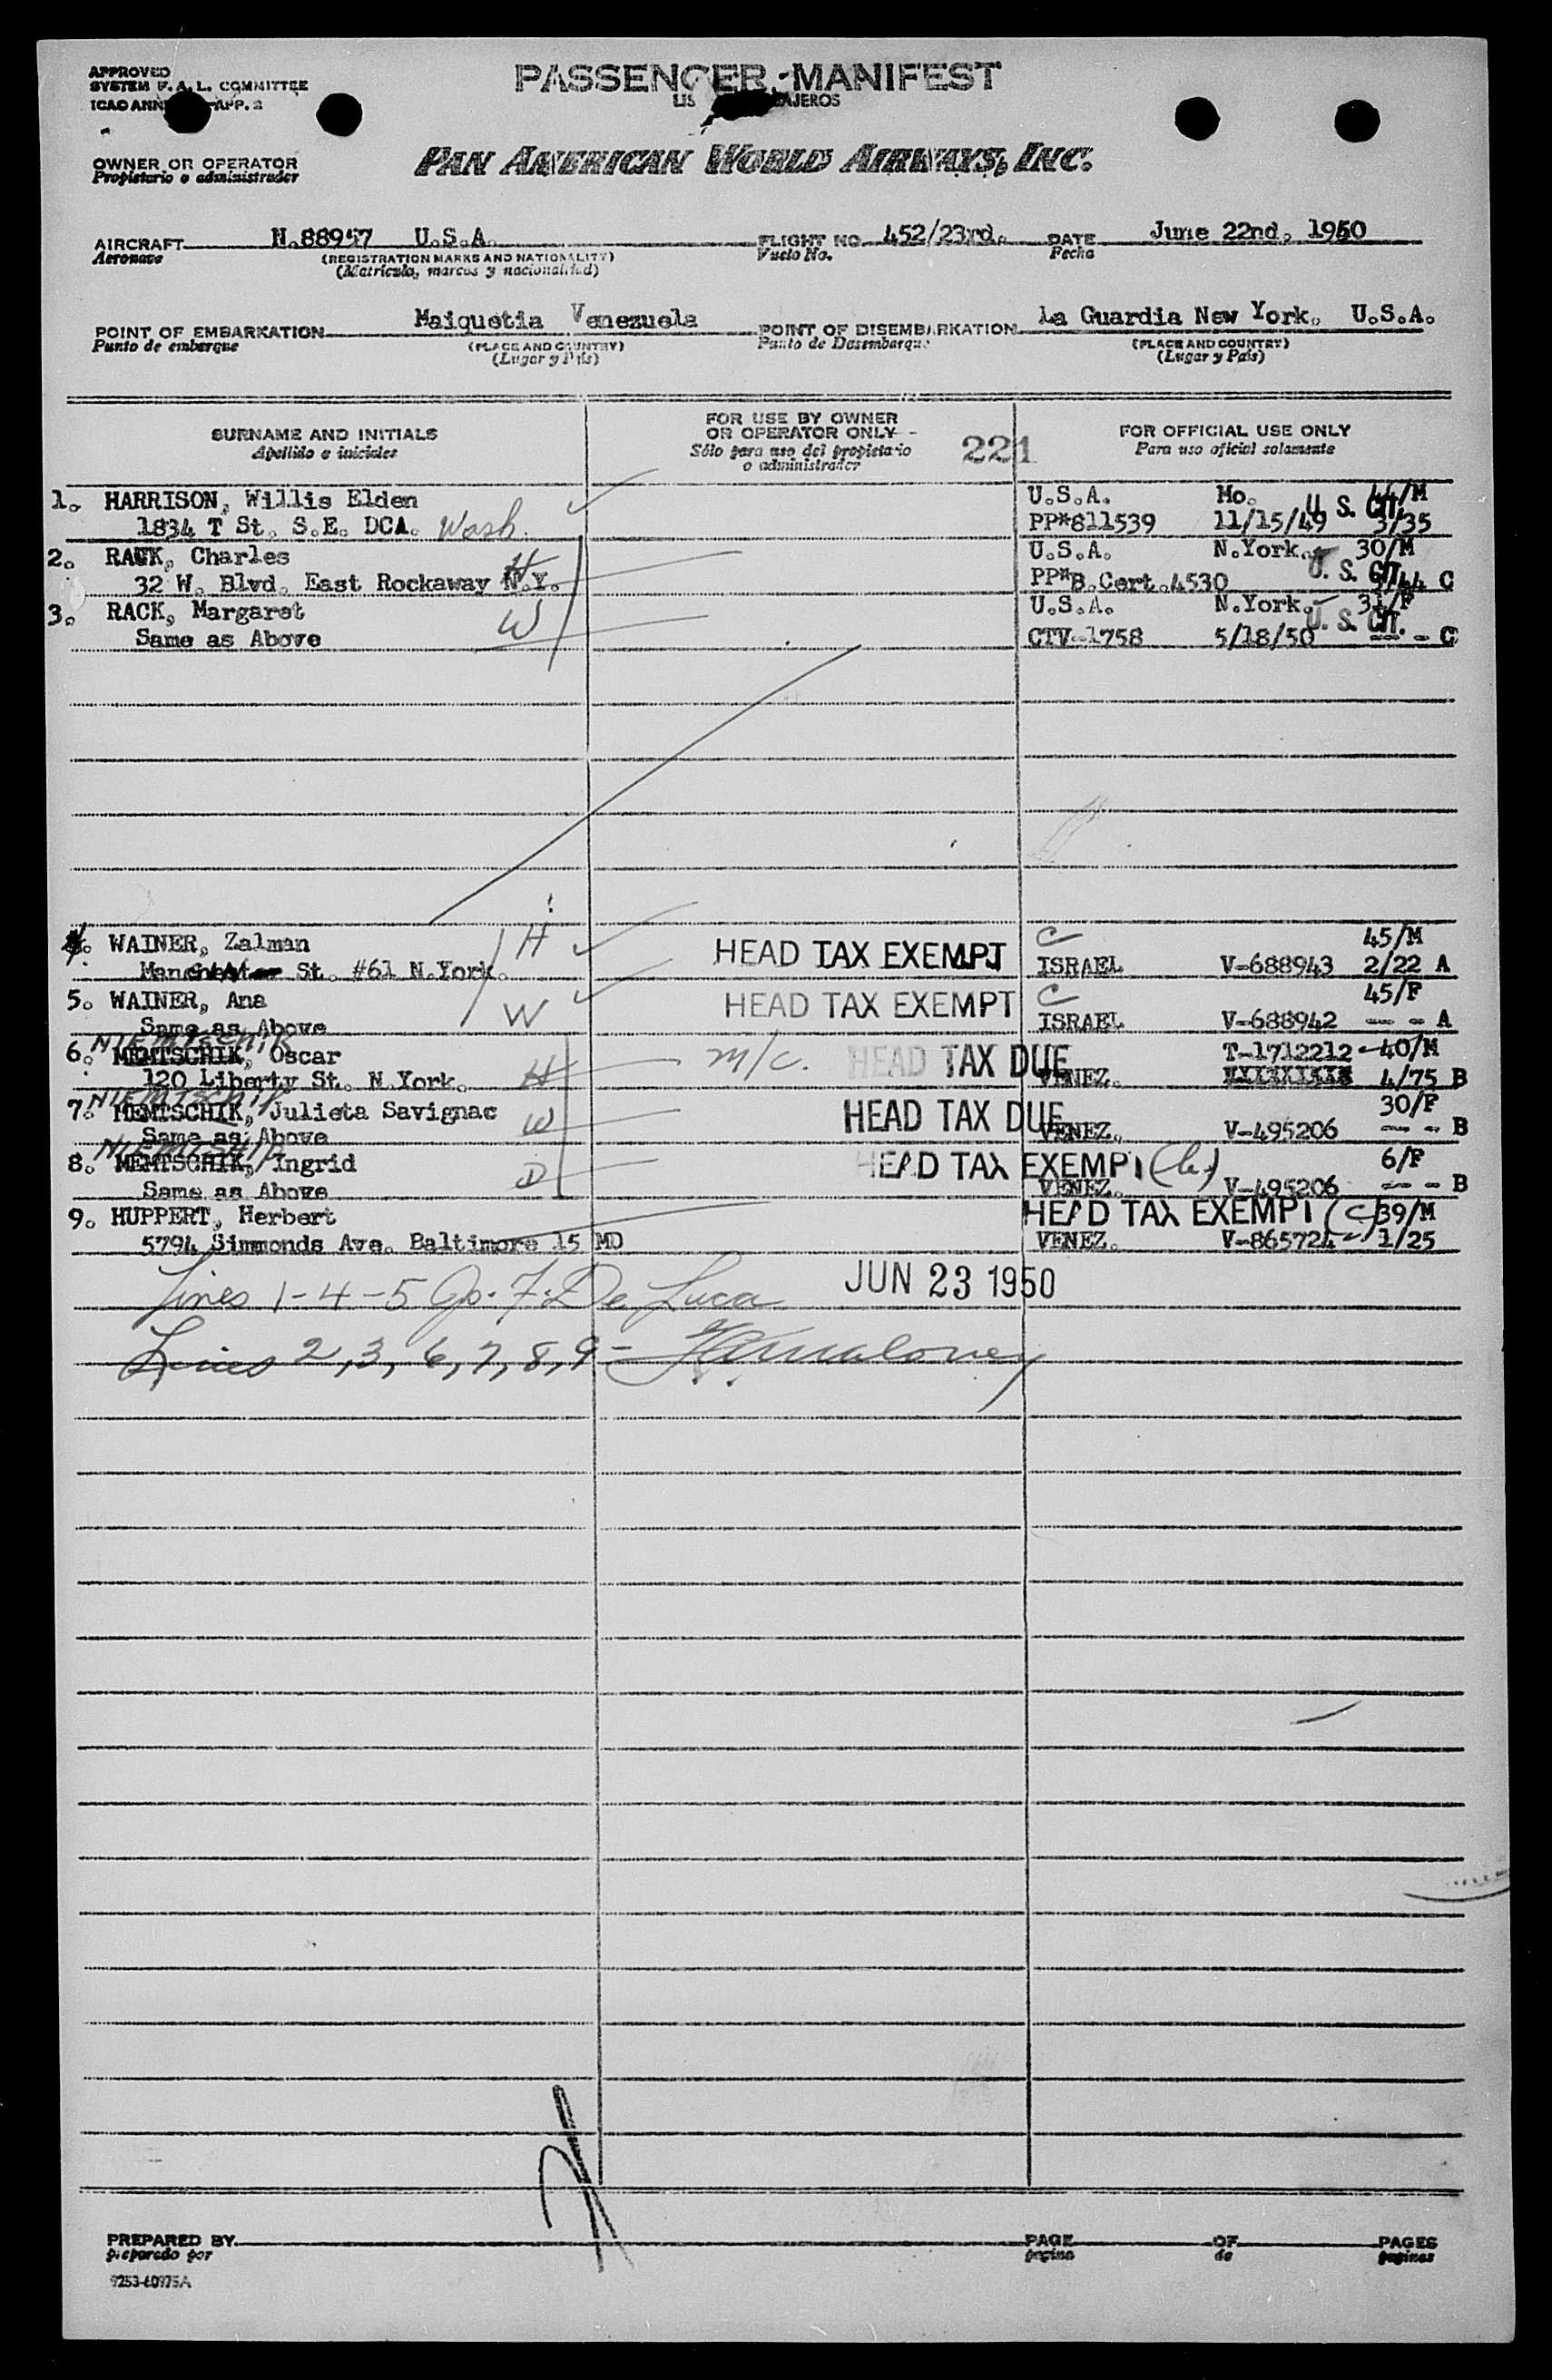 APPROVED
SYSTEM F.A.L. COMMITTEE
ICAO APP. 2
PASSENGER MANIFEST
OWNER OR OPERATOR
Propietario o administrador
PAN AMERICAN WORLD AIRWAYS, INC.
AIRCRAFT N.88957 U.S.A. FLIGHT NO. 452/23rd. DATE June 22nd. 1950
Aeronave (REGISTRATION MARKS AND NATIONALITY) Vuelo No. Fecha
(Matrícula, marcas y nacionalidad)
POINT OF EMBARKATION Maiquetia Venezuela POINT OF DISEMBARKATION La Guardia New York. U.S.A.
Punto de embarque (PLACE AND COUNTRY) Punto de Desembarque (PLACE AND COUNTRY)
(Lugar y País) (Lugar y País)
SURNAME AND INITIALS FOR USE BY OWNER OR OPERATOR ONLY 221 FOR OFFICIAL USE ONLY
Apellido e iniciales Sólo para uso del propietario o administrador Para uso oficial solamente
1. HARRISON, Willis Elden U.S.A. Mo. 44/M
1834 T St. S.E. DCA. Wash. PP*811539 11/15/49 U. S. CIT. 3/35
2. RACK, Charles H U.S.A. N.York. 30/M
32 W. Blvd. East Rockaway N.Y. PP*B.Cert.4530 U. S. CIT. C
3. RACK, Margaret W U.S.A. N.York. 31/F
Same as Above CTV-1758 5/18/50 U. S. CIT. -- - C
4. WAINER, Zalman H HEAD TAX EXEMPT C 45/M
St. #61 N.York. ISRAEL V-688943 2/22 A
5. WAINER, Ana W HEAD TAX EXEMPT C 45/F
Same as Above ISRAEL V-688942 -- - A
NIEMTSCHIK
6. MEMTSCHIK, Oscar m/c. HEAD TAX DUE T-1712212 40/M
120 Liberty St. N.York. H VENEZ. 4/75 B
NIEMTSCHIK
7. MEMTSCHIK, Julieta Savignac HEAD TAX DUE 30/F
Same as Above W VENEZ. V-495206 -- - B
NIEMTSCHIK
8. MEMTSCHIK, Ingrid HEAD TAX EXEMPT 6/F
Same as Above D VENEZ. V-495206 -- - B
9. HUPPERT, Herbert HEAD TAX EXEMPT (c) 39/M
5794 Simmonds Ave. Baltimore 15 MD VENEZ. V-865724 1/25
Lines 1-4-5 De Luca JUN 23 1950
Lines 2,3, 6,7,8,9-
PREPARED BY PAGE OF PAGES
preparado por pagina de paginas
9253-60975A